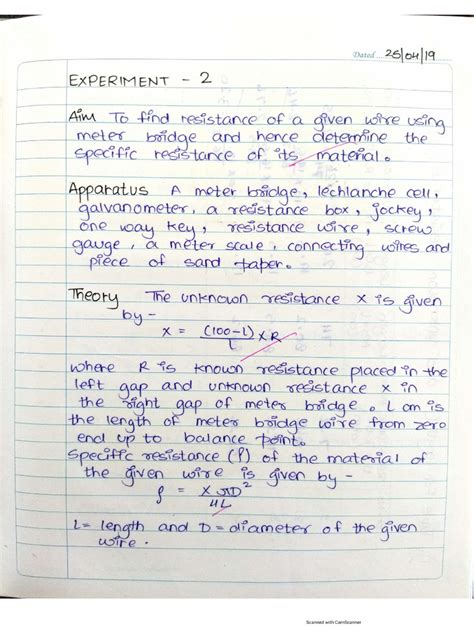 Dated... 25/04/19
EXPERIMENT - 2
Aim To find resistance of a given wire using
meter bridge and hence determine the
specific resistance of its material.
Apparatus A meter bridge, lechlanche cell,
galvanometer, a resistance box, jockey,
one way key, resistance wire, screw
gauge, a meter scale, connecting wires and
piece of sand paper.
Theory The unknown resistance X is given
by -
X = (100-L)/L × R
where R is known resistance placed in the
left gap and unknown resistance X in
the right gap of meter bridge. L cm is
the length of meter bridge wire from zero
end up to balance point.
Specific resistance (ρ) of the material of
the given wire is given by -
ρ = XπD²/4L
L= length and D= diameter of the given
wire.
Scanned with CamScanner